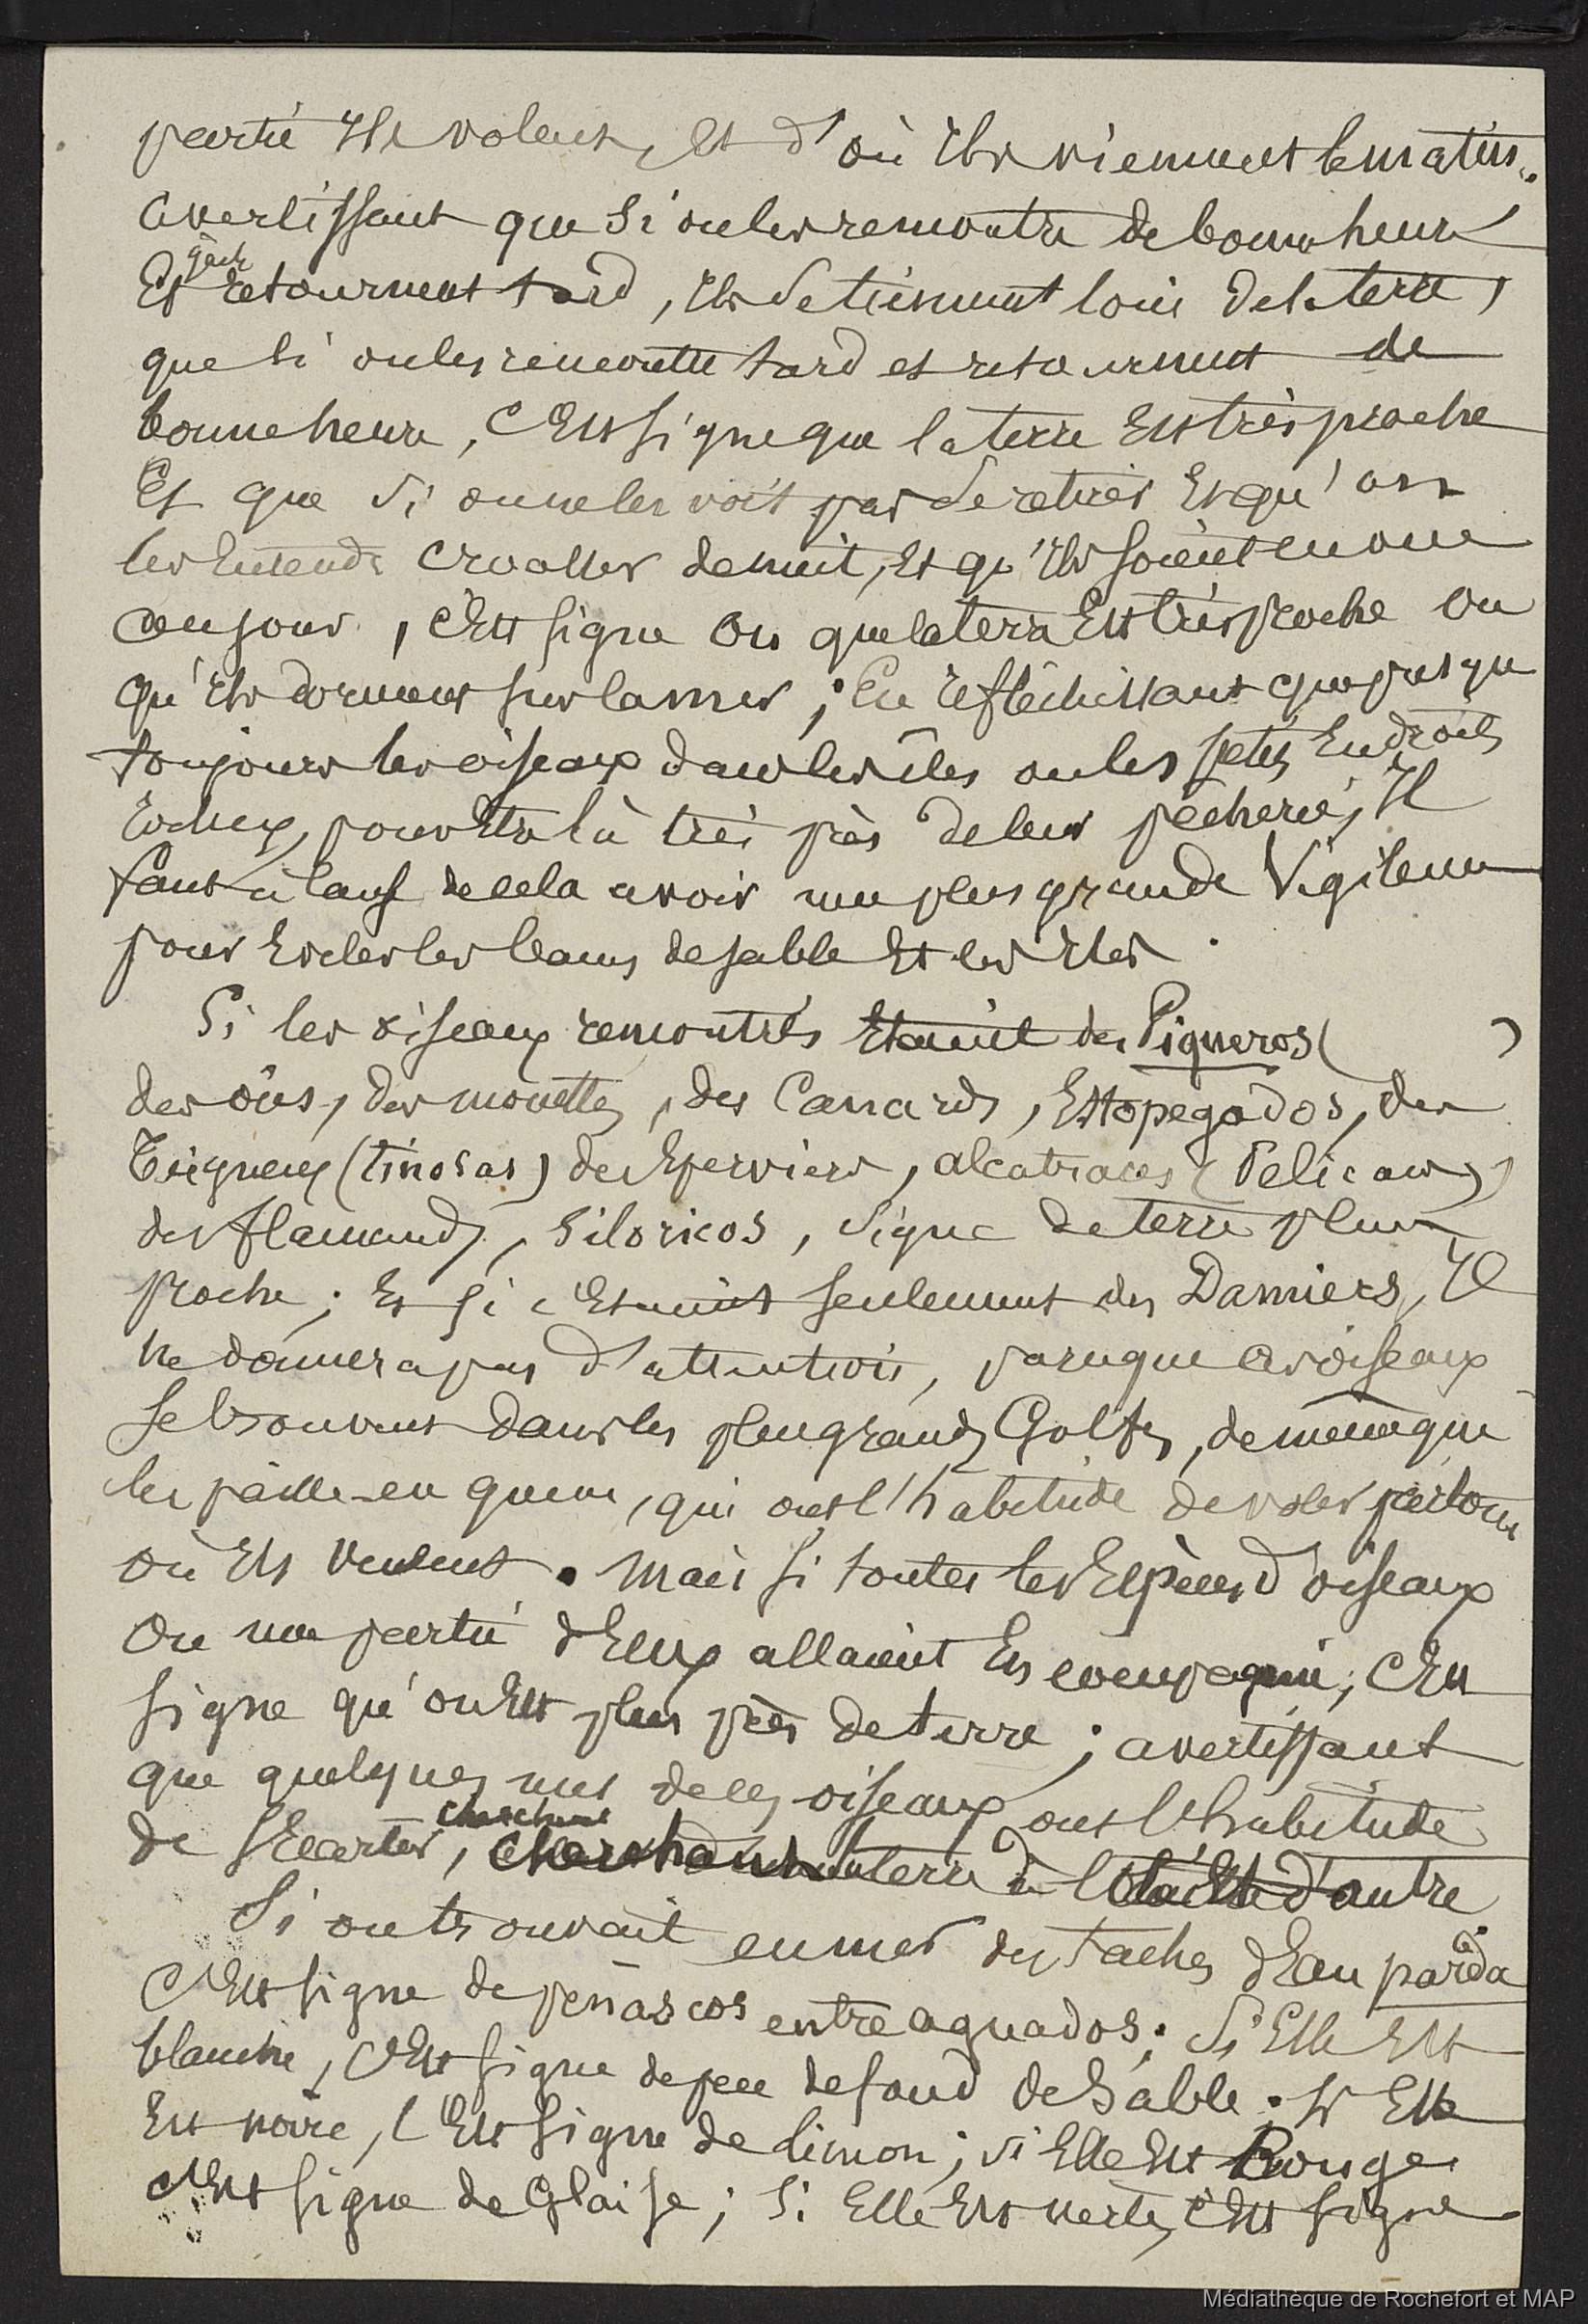 partie Ils volent, et d'où Ils viennent le matin..
avertissant que si on les rencontre de bonne heure
Et qu'ils retournent tard, Ils se tiennent loin de la terre,
que si on les rencontre tard et retournent de
bonne heure, c'Est signe que la terre Est très proche
Et que si on ne les voit pas se retirer Et qu'on
les Entende croasser de nuit, et qu'Ils soient encore
au jour, c'Est signe ou que la terre Est très proche ou
qu'Ils dorment sur la mer; En réfléchissant que presque
toujours les oiseaux dans les îles ou les petits Endroits
Rocheux, pour Etre là très près de leur pêcherie, Il
faut à cause de cela avoir une plus grande Vigilance
pour les bancs de sable Et les Iles.
Si les oiseaux rencontrés Etaient des Piqueros (        )
des oies, des mouettes, des Canards, Estopegados, des
Teigneux (tinosas) des Eperviers, alcatraces (Pelicans),
des flamands, Siloricos, signe de terre plus
proche; Et si c'Etaient seulement des Damiers, Il
ne donnera pas d'attention, parceque ces oiseaux
se trouvent dans les plus grands Golfes, de même que
les paille-en queue, qui ont l'habitude de voler partout
où Ils veulent. Mais si toutes les Espèces d'oiseaux
ou une partie d'Eux allaient En compagnie, c'Est
signe qu'on Est plus près de terre; avertissant
que quelques uns de ces oiseaux ont l'habitude
de s'Ecarter, cherchant terre d'autre
Si on trouvait en mer des taches d'Eau parda
c'Est signe de peñascos entre aguados; si Elle Est
blanche, c'Est signe de peu de fond de Sable; si Elle
Est noire, c'Est signe de limon; si Elle Est Rouge
c'Est signe de Glaise; si Elle Est verte, c'Est signe
Médiathèque de Rochefort et MAP